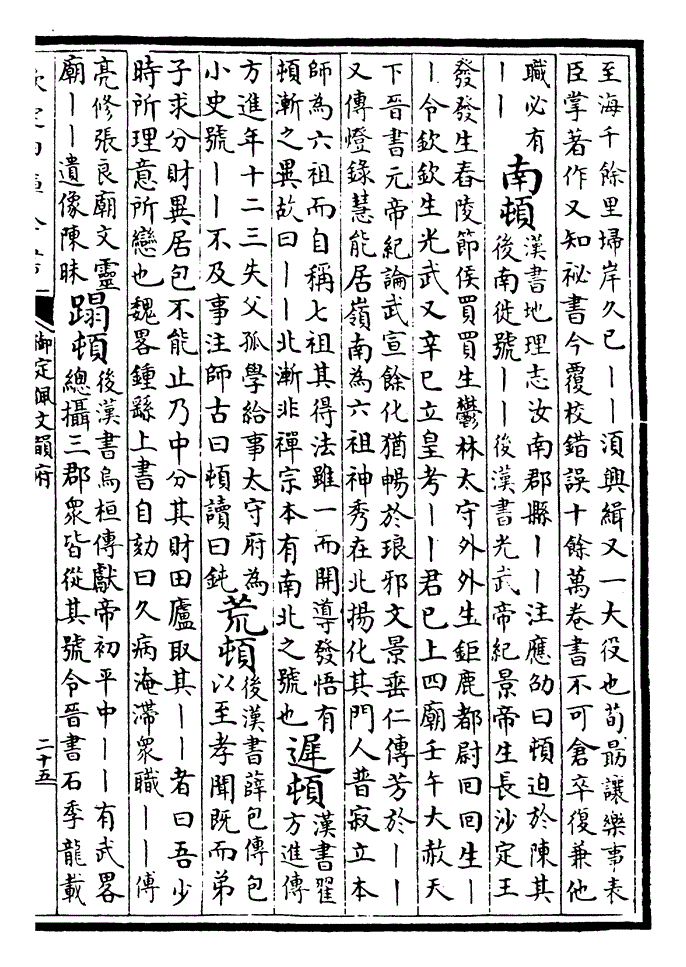 至海千餘里埽岸久已丨丨湏興緝又一大役也荀勗讓樂事表
臣掌著作又知祕書今覆校錯誤十餘萬卷書不可倉卒復兼他
職必有
丨丨
南頓
漢書地理志汝南郡縣丨丨注應劭曰頓迫於陳其
後南徙號丨丨後漢書光武帝紀景帝生長沙定王
發發生舂陵節侯買買生鬱林太守外外生鉅鹿都尉囘囘生丨
丨令欽欽生光武又辛巳立皇考丨丨君已上四廟壬午大赦天
下晉書元帝紀論武宣餘化猶暢於琅邪文景垂仁傳芳於丨丨
又傳燈錄慧能居嶺南為六祖神秀在北揚化其門人普寂立本
師為六祖而自稱七祖其得法雖一而開導發悟有
頓漸之異故曰丨丨北漸非禪宗本有南北之號也
遲頓
漢書翟
方進傳
方進年十二三失父孤學給事太守府為
小史號丨丨不及事注師古曰頓讀曰鈍
荒頓
後漢書薛包傳包
以至孝聞既而弟
子求分財異居包不能止乃中分其財田廬取其丨丨者曰吾少
時所理意所戀也魏畧鍾繇上書自劾曰久病淹滯衆職丨丨傅
亮修張良廟文靈
廟丨丨遺像陳昧
蹋頓
後漢書烏桓傳獻帝初平中丨丨有武畧
總攝三郡衆皆從其號令晉書石季龍載
欽定四庫全書
御定佩文韻府
二十五